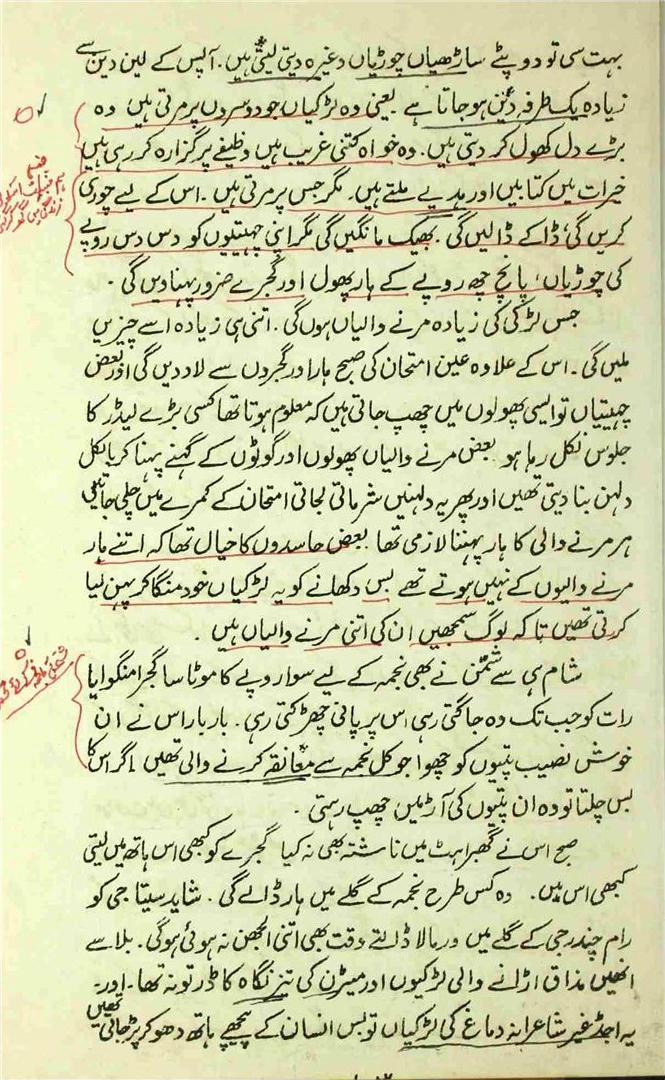 بہت سی تو دوپٹے ساڑھیاں چوڑیاں وغیرہ دیتی لیتی ہیں۔ آپس کے لین دین سے
زیادہ یک طرفہ دَین ہو جاتا ہے یعنی وہ لڑکیاں جو دوسروں پر مرتی ہیں وہ
بڑے دل کھول کر دیتی ہیں۔ وہ خواہ کتنی غریب ہیں وظیفے پر گزارہ کر رہی ہیں
خیرات میں کتابیں اور ہدیے ملتے ہیں۔ مگر جس پر مرتی ہیں۔ اس کے لیے چوری
کریں گی، ڈاکے ڈالیں گی۔ بھیک مانگیں گی مگر اپنی چہیتیوں کو دس دس روپے
کی چوڑیاں، پانچ چھ روپے کے ہار پھول اور گجرے ضرور پہنا دیں گی۔
جس لڑکی کی زیادہ مرنے والیاں ہوں گی۔ اتنی ہی زیادہ اسے چیزیں
ملیں گی۔ اس کے علاوہ عین امتحان کی صبح ہار اور گجروں سے لاد دیں گی اور بعض
چہیتیاں تو ایسی پھولوں میں چھپ جاتی ہیں کہ معلوم ہوتا تھا کسی بڑے لیڈر کا
جلوس نکل رہا ہو بعض مرنے والیاں پھولوں اور گوٹوں کے گہنے پہنا کر بالکل
دلہن بنا دیتی تھیں اور پھر یہ دلہنیں شرماتی لجاتی امتحان کے کمرے میں چلی جاتیں
ہر مرنے والی کا ہار پہننا لازمی تھا بعض حاسدوں کا خیال تھا کہ اتنے ہار
مرنے والیوں کے نہیں ہوتے تھے بس دکھانے کو یہ لڑکیاں خود منگا کر پہن لیا
کرتی تھیں تا کہ لوگ سمجھیں ان کی اتنی مرنے والیاں ہیں۔
شام ہی سے شمّن نے بھی نجمہ کے لیے سوا روپے کا موٹا سا گجرا منگوایا
رات کو جب تک وہ جاگتی رہی اس پر پانی چھڑکتی رہی۔ بار بار اس نے ان
خوش نصیب پتیوں کو چھوا جو کل نجمہ سے معانقہ کرنے والی تھیں۔ اگر اس کا
بس چلتا تو وہ ان پتیوں کی آڑ میں چھپ رہتی۔
صبح اس نے گھبراہٹ میں ناشتہ بھی نہ کیا گجرے کو کبھی اس ہاتھ میں لیتی
کبھی اس میں۔ وہ کس طرح نجمہ کے گلے میں ہار ڈالے گی۔ شاید سیتا جی کو
رام چندر جی کے گلے میں ورمالا ڈالتے وقت بھی اتنی الجھن نہ ہوئی ہوگی۔ بلا سے
انھیں مذاق اڑانے والی لڑکیوں اور میٹرن کی تیز نگاہ کا ڈر تو نہ تھا۔ اور
یہ اجڈ غیر شاعرانہ دماغ کی لڑکیاں تو بس انسان کے پیچھے ہاتھ دھو کر پڑ جاتی تھیں